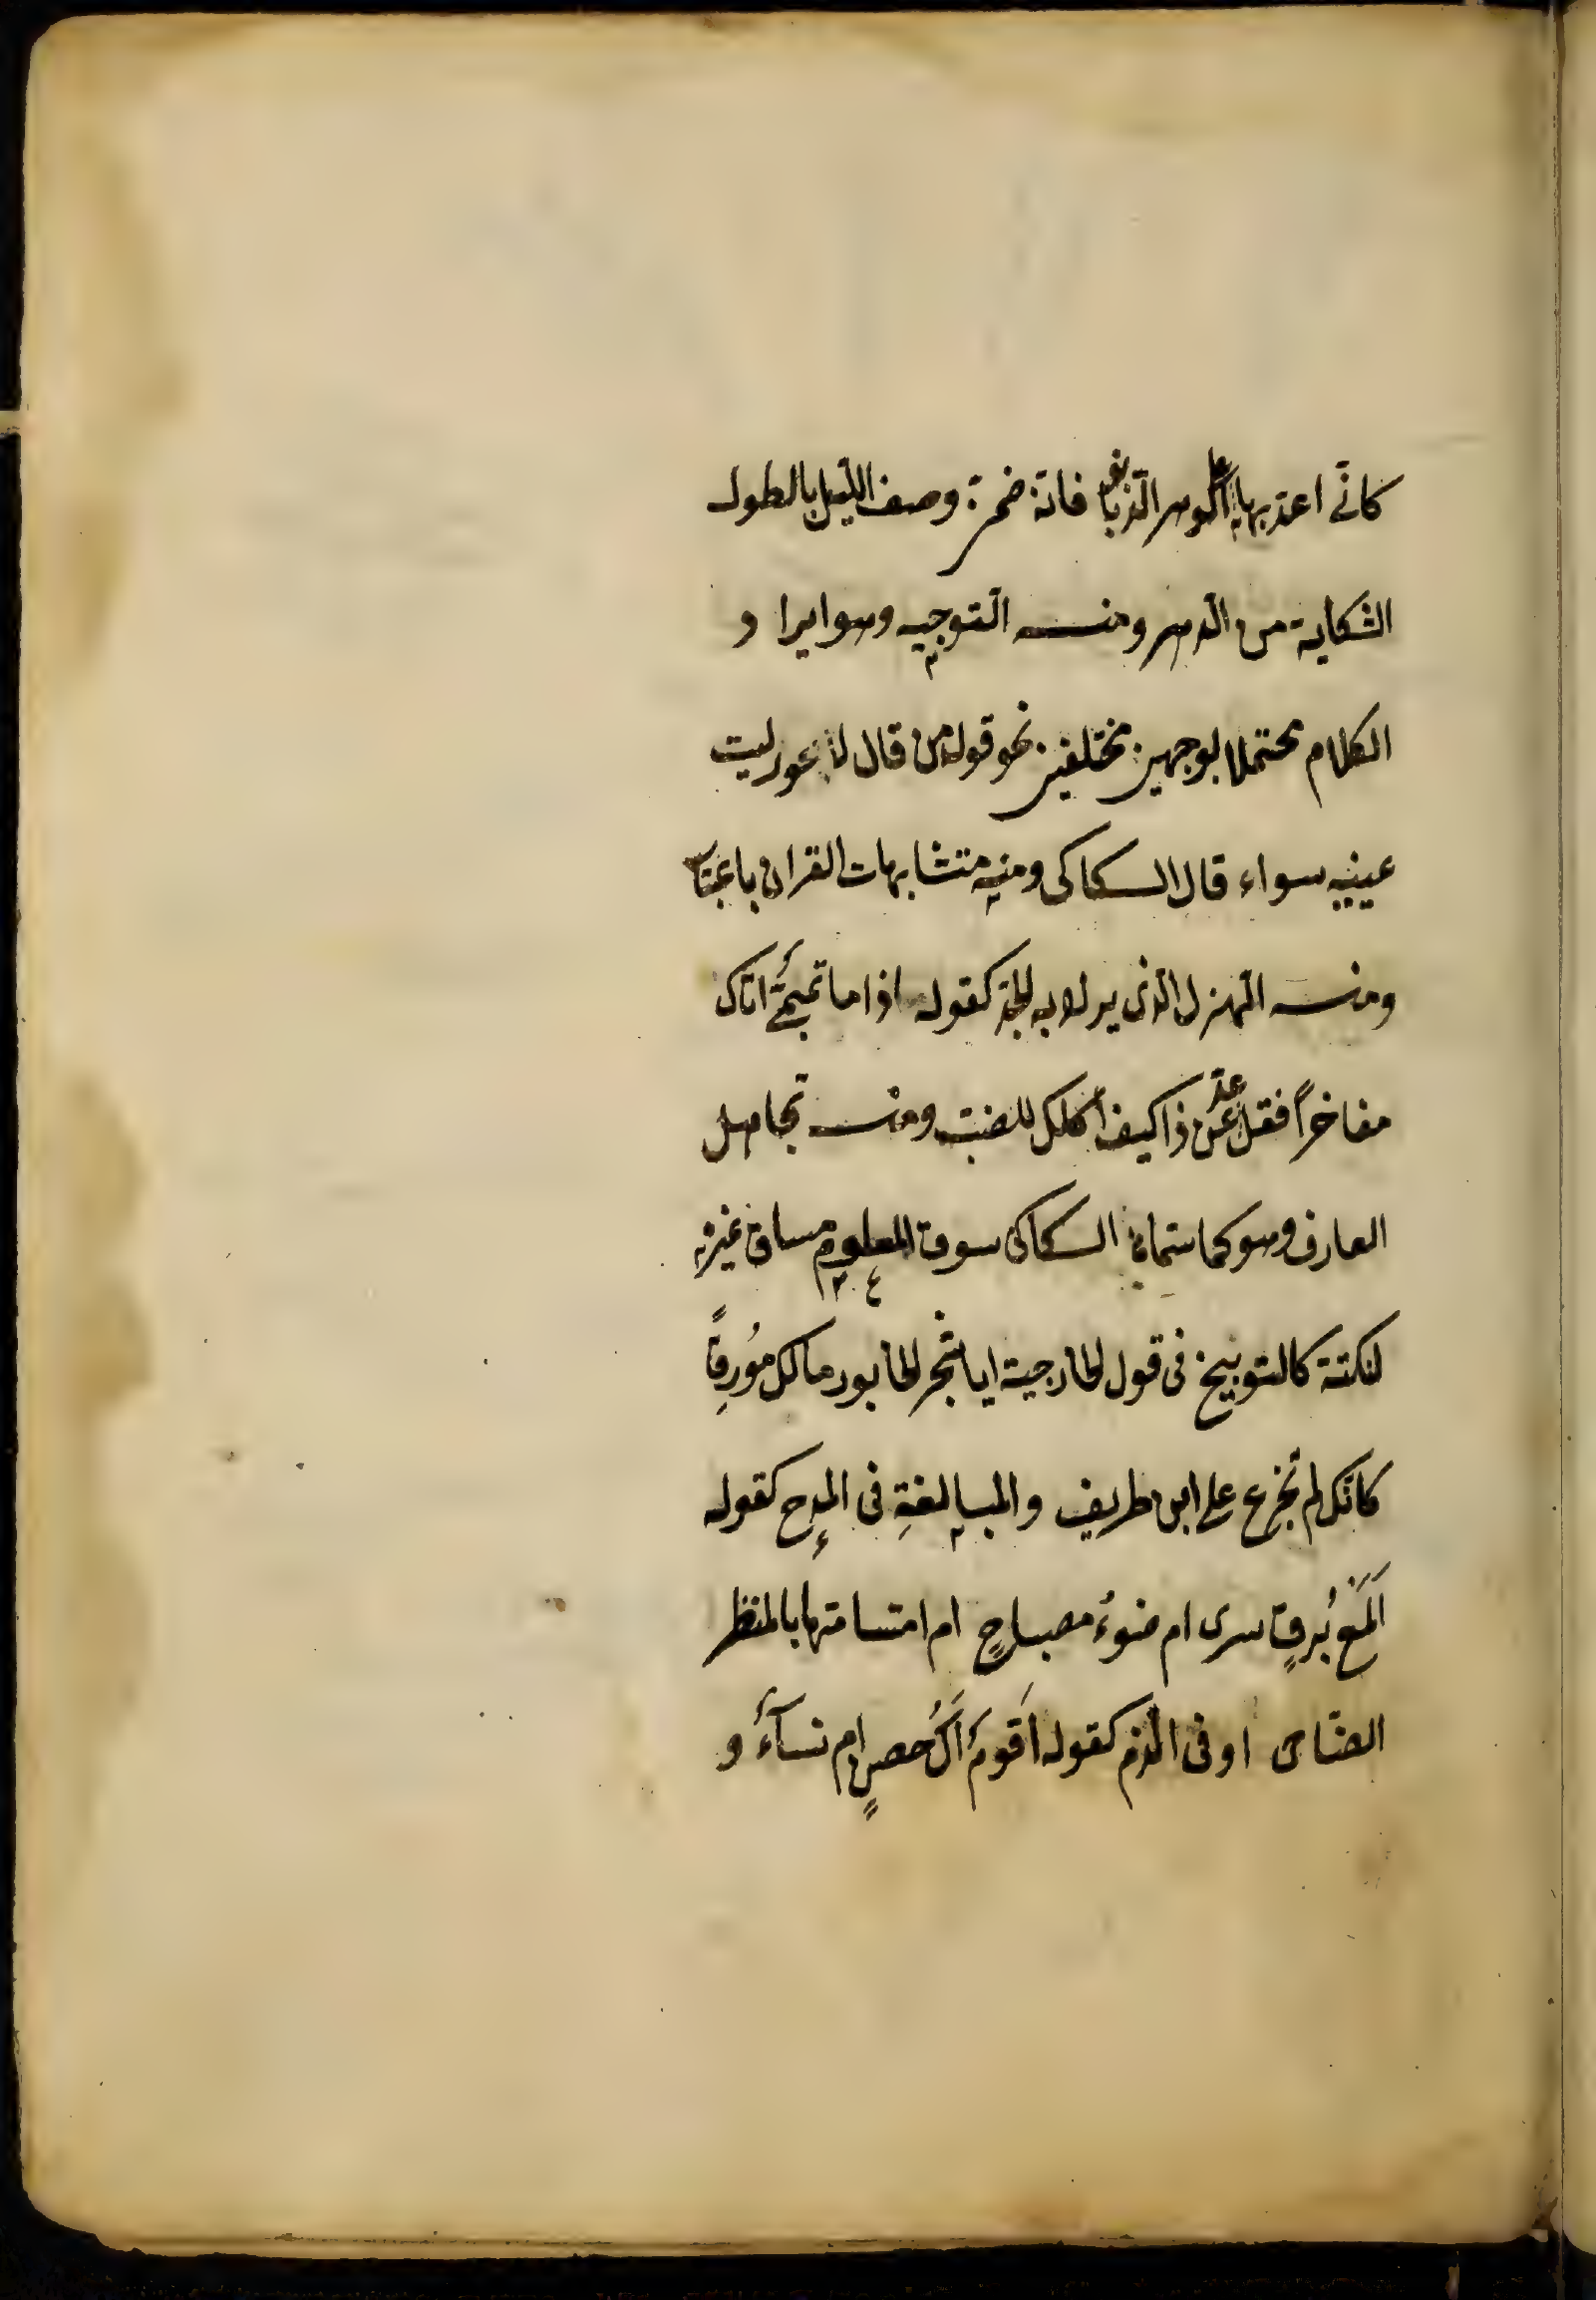 كانّى اعد بها على الدهر الذنوبا فانه ضمن وصف الليل بالطول
الشكاية من الدهر ومنه التوجيه وهو ايراد
الكلام محتملا لوجهين مختلفين نحو قول من قال لاعور ليت
عينيه سواء قال السكاكى ومنه متشابهات القران باعتبار
ومنه الهزل الذى يراد به الجد كقوله اذا ما تميمىٌّ اتاك
مفاخراً فقل عدّ عن ذا كيف اكلك للضب ومنه تجاهل
العارف وهو كما سماه السكاكى سوق المعلوم مساق غيره
لنكتة كالتوبيخ فى قول الخارجية ايا شجر الخابور مالك مُورِقاً
كانك لم تجزع على ابن طريف والمبالغةِ فى المدح كقوله
اَلَمْعُ بُرقٍ سرى ام ضوءُ مصباحٍ ام ابتسامتها بالمنظر
الضاحى او فى الذم كقوله اَقومٌ اَلُ حصنٍ ام نسآءُ و